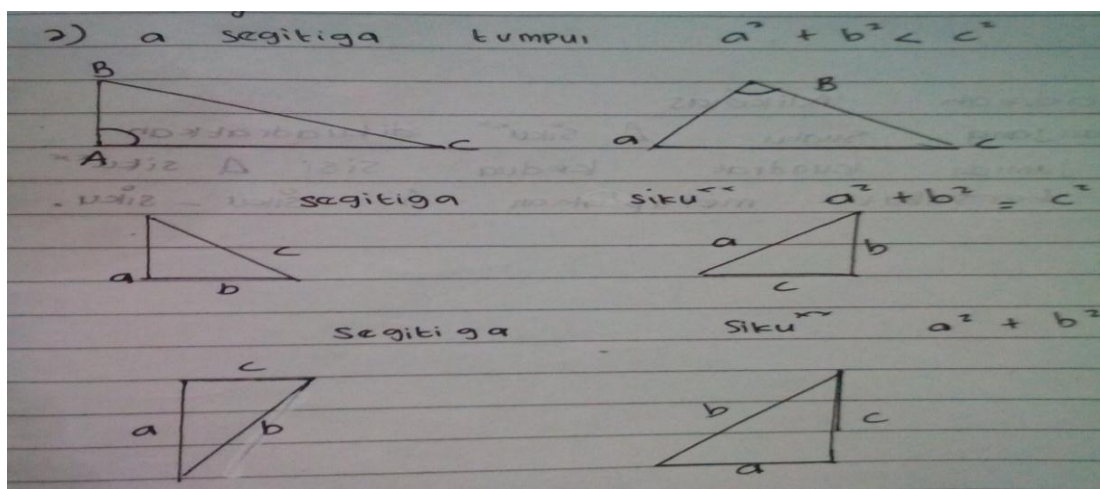 2) a segitiga tumpul a² + b² < c²
B B
A C a C
segitiga siku" a² + b² = c²
c a b
a b c
segitiga siku" a² + b²
c
a b b c
a